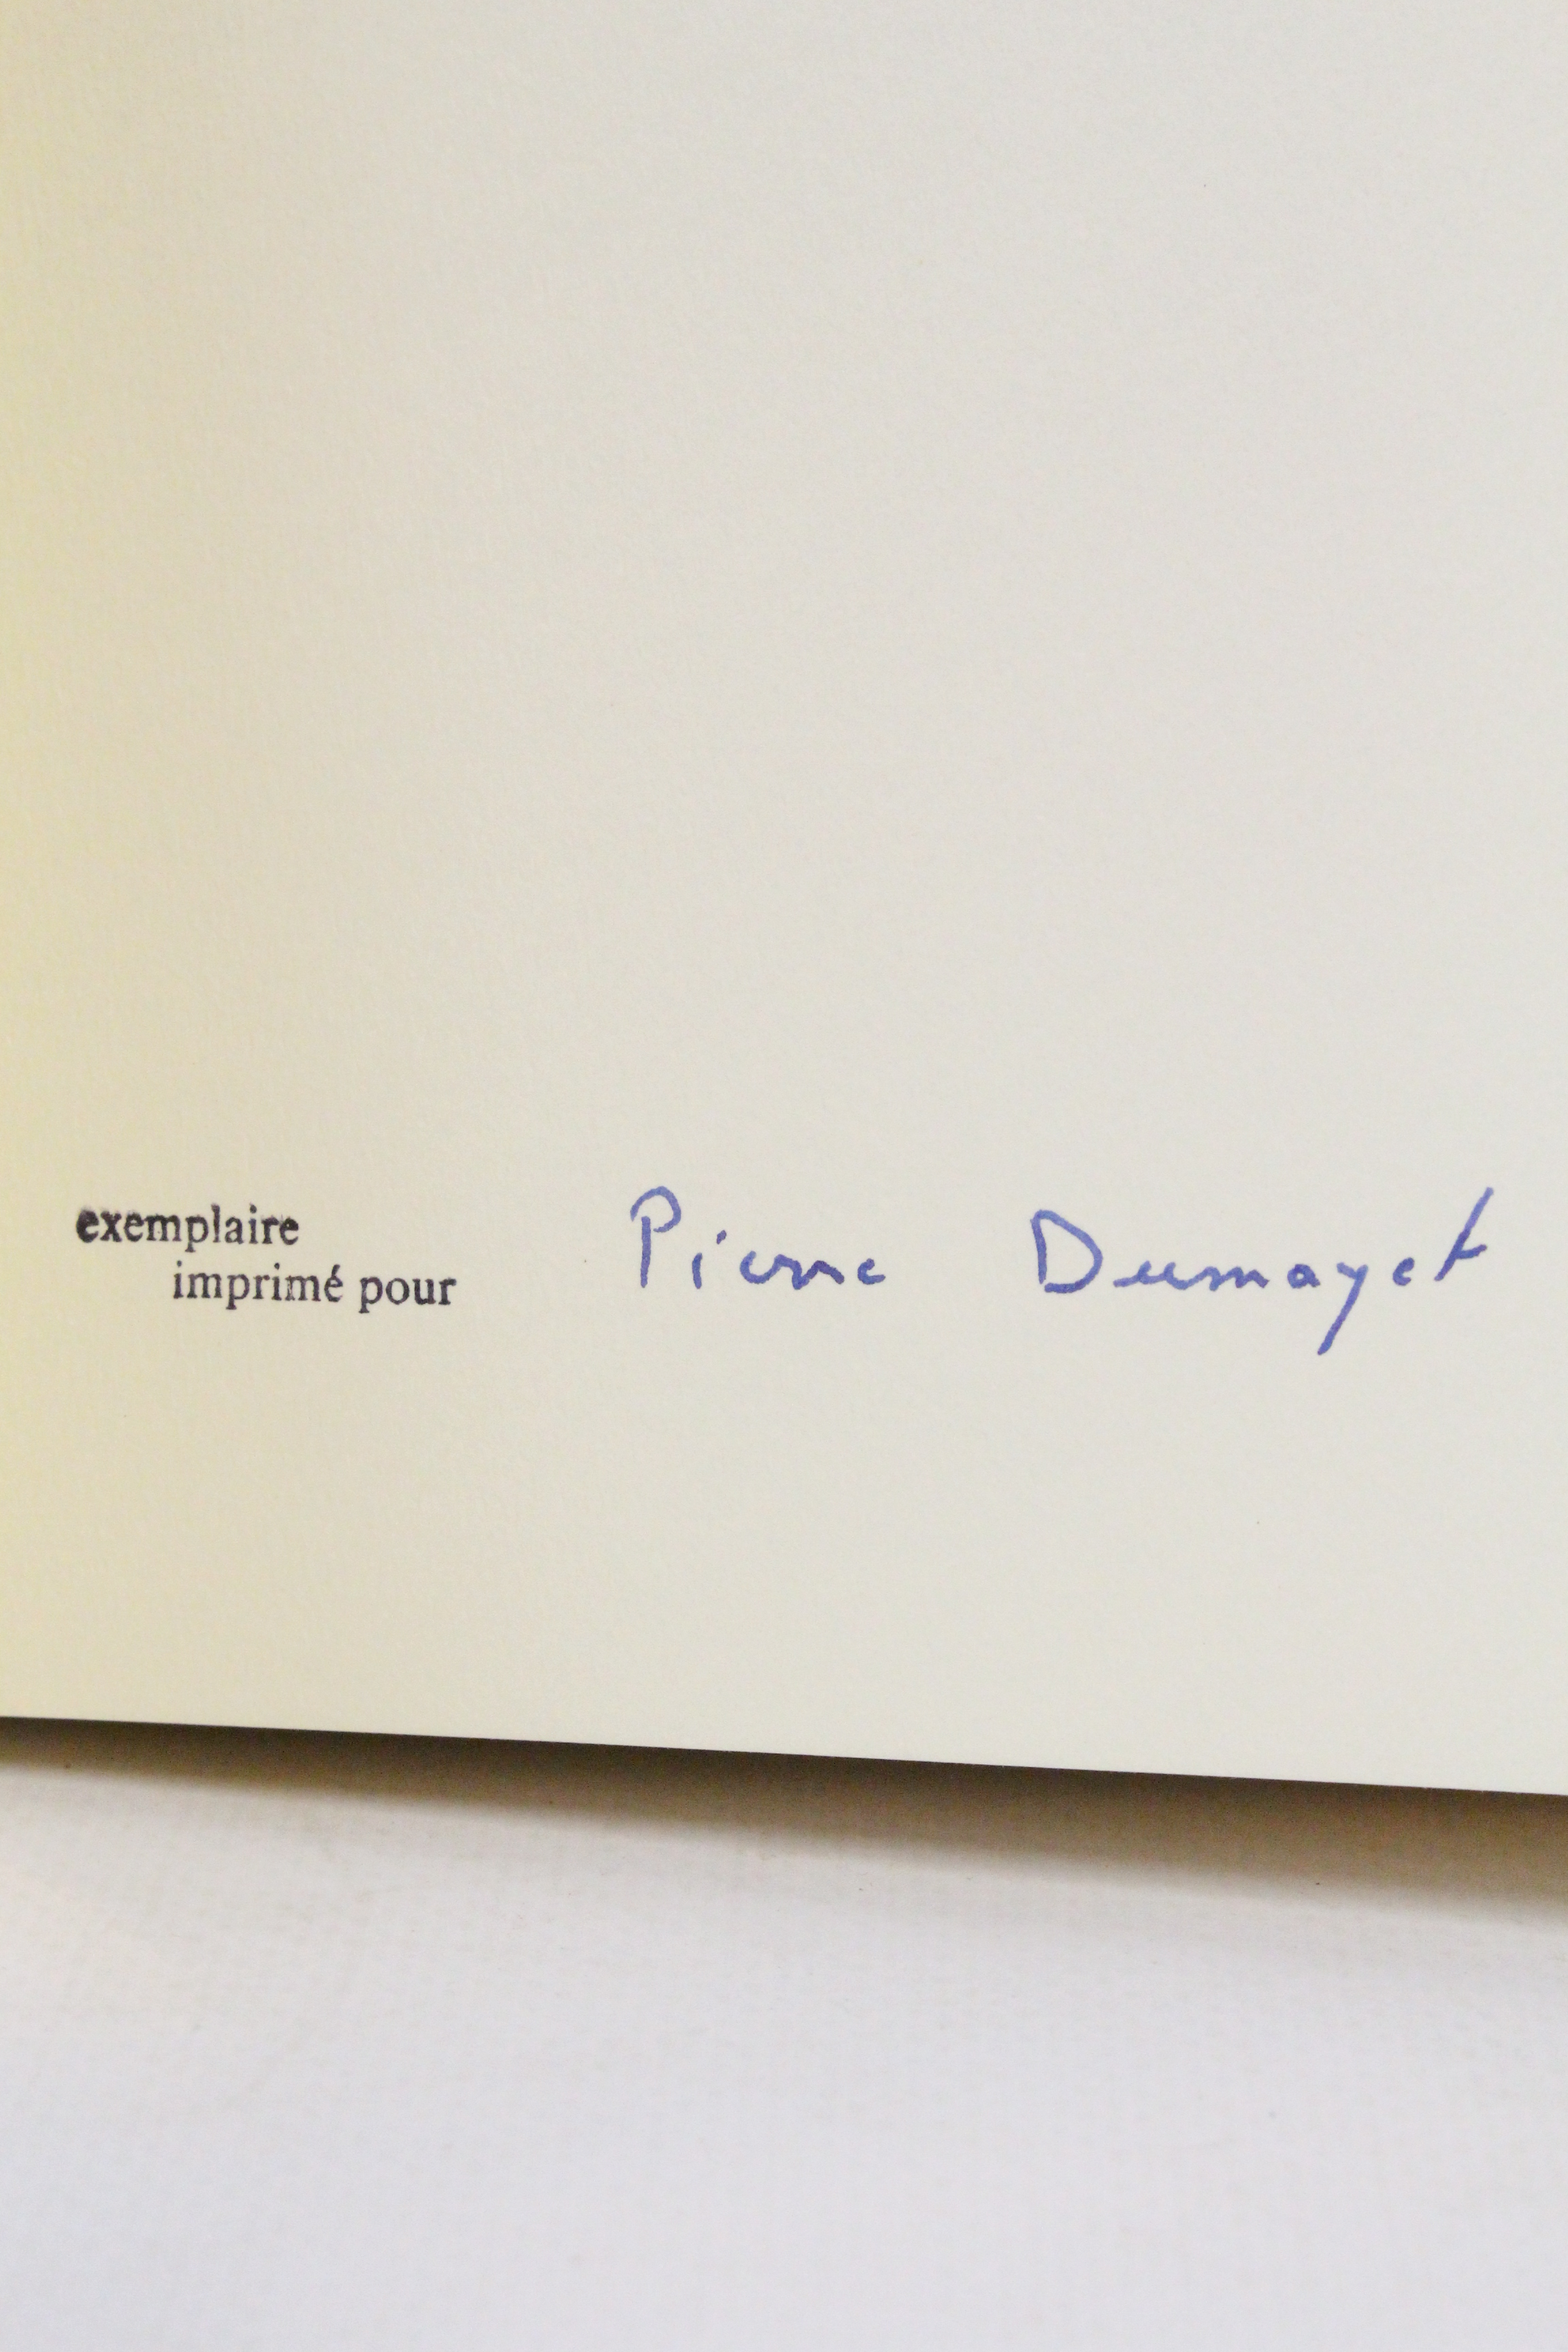 exemplaire
imprimé pour Pierre Dumayet